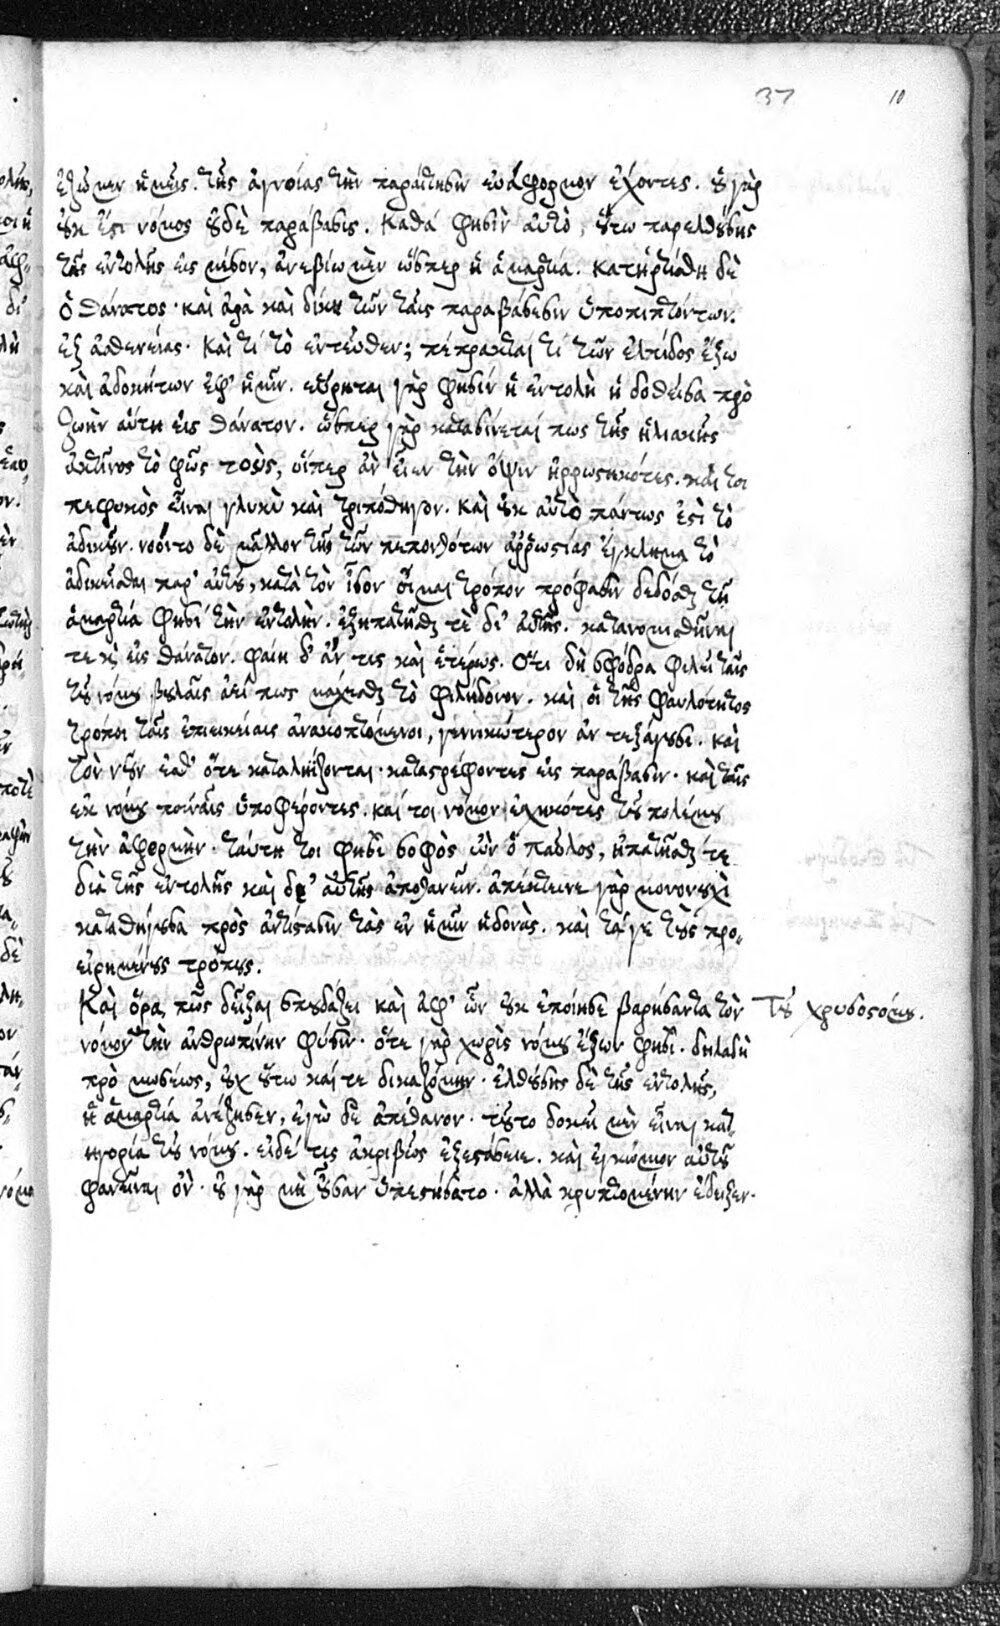 37 10
ἔζων μὲν ἡμεῖς. τῆς ἀγνοίας τὴν παραίτησιν εὐάφορμον ἔχοντες. οὗ γὰρ
οὐκ ἔστι νόμος οὐδὲ παράβασις. Καθά φησὶν αὐτὸ, οὕτω παρελθούσης
τῆς ἐντολῆς εἰς μέσον, ἀνεβίω μὲν ὥσπερ ἡ ἁμαρτία. κατηρτίσθη δὲ
ὁ θάνατος. καὶ ἀρὰ καὶ δίκη τῶν ταῖς παραβάσεσιν ὑποπιπτόντων.
ἐξ ἀσθενείας. Καὶ τί τὸ ἐντεῦθεν; πέπρακταί τί τῶν ἐλπίδος ἔξω
καὶ ἀδοκήτων ἐφ' ἡμῶν. εὕρηται γὰρ φησίν ἡ ἐντολὴ ἡ δοθεῖσα πρὸ
ζωὴν αὕτη εἰς θάνατον. ὥσπερ γὰρ κατασίνεταί πως τῆς ἡλιακῆς
ἀκτῖνος τὸ φῶς τοὺς, οἵπερ ἂν εἶεν τὴν ὄψιν ἠρρωστηκότες. καί τοι
πεφυκὸς εἶναι γλυκὺ καὶ τριπόθητον. καὶ οὐκ αὐτὸ πάντως ἐστὶ τὸ
ἀδικοῦν. νοοῖτο δὲ μᾶλλον τῆς τῶν πεπονθότων ἀρρωστίας ἔγκλημα τὸ
ἀδικεῖσθαι παρ' αὐτοῦ, κατὰ τὸν ἴσον οἶμαι τρόπον πρόφασιν δεδόσθαι τῇ
ἁμαρτίᾳ φησί τὴν ἐντολὴν. ἐξηπατῆσθαί τὲ δι' αὐτῆς. κατανομισθῆναι
τε καὶ εἰς θάνατον. φαίη δ' ἄν τις καὶ ἑτέρως. Ὅτι δὴ σφόδρα φιλεῖ ταῖς
τοῦ νόμου βουλαῖς ἀεί πως μάχεσθαι τὸ φιλήδονον. καὶ οἱ τῆς φαυλότητος
τρόποι ταῖς ἐπιεικείαις ἀνακοπτόμενοι, γεννικώτερον ἀντεξάγουσι. καὶ
τὸν νοῦν ἐσθ' ὅτε καταληΐζονται. καταστρέφοντες εἰς παράβασιν. καὶ ταῖς
ἐκ νόμου ποιναῖς ὑποφέροντες. καί τοι νόμον ἐχηκότες τοῦ πολέμου
τὴν ἀφορμὴν. ταύτῃ τοι φησὶ σοφὸς ὢν ὁ παῦλος, ἠπατῆσθαί τε
διὰ τῆς ἐντολῆς καὶ δι' αὐτῆς ἀποθανεῖν. ἀπέκτεινε γὰρ μονονουχὶ
καταθήγουσα πρὸς ἀντίστασιν τὰς ἐν ἡμῖν ἡδονὰς. καὶ τάγε τοὺς προ-
ειρημένους τρόπους.
Καὶ ὅρα πῶς δεῖξαι σπουδάζει καὶ ἀφ' ὧν οὐκ ἐποίησε βαρήσαντα τὸν Τοῦ χρυσοστόμου.
νόμον τὴν ἀνθρωπίνην φύσιν. ὅτε γὰρ χωρὶς νόμου ἔζων φησὶ. δηλαδὴ
πρὸ μωσέως, οὐχ οὕτω κατεδικαζόμην. ἐλθούσης δὲ τῆς ἐντολῆς,
ἡ ἁμαρτία ἀνέζησεν, ἐγὼ δὲ ἀπέθανον. τοῦτο δοκεῖ μὲν εἶναι κατ-
ηγορία τοῦ νόμου. εἰδέ τις ἀκριβῶς ἐξετάσειε. καὶ ἐγκώμιον αὐτοῦ
φανεῖται ὂν. οὐ γὰρ μὴ οὖσαν ὑπεστήσατο. ἀλλὰ κρυπτομένην ἔδειξεν.